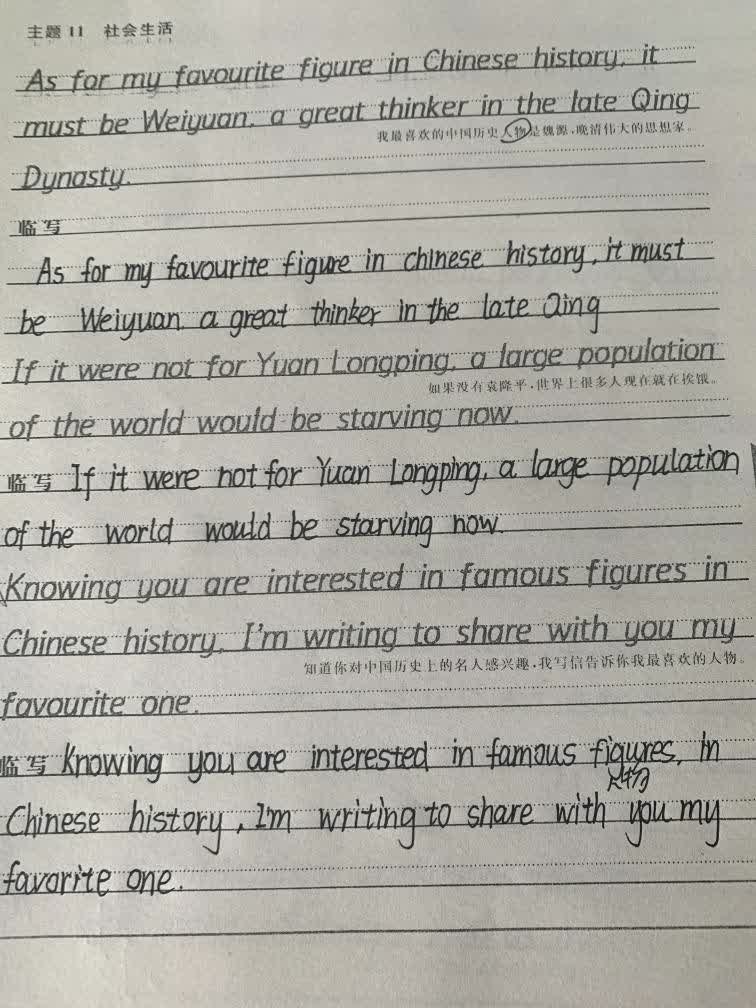 主题 11 社会生活
As for my favourite figure in Chinese history, it
must be Weiyuan, a great thinker in the late Qing
我最喜欢的中国历史人物是魏源,晚清伟大的思想家。
Dynasty.
临写
As for my favourite figure in chinese history, it must
be Weiyuan, a great thinker in the late Qing
If it were not for Yuan Longping, a large population
如果没有袁隆平,世界上很多人现在就在挨饿。
of the world would be starving now.
临写 If it were not for Yuan Longping, a large population
of the world would be starving now.
Knowing you are interested in famous figures in
Chinese history, I'm writing to share with you my
知道你对中国历史上的名人感兴趣,我写信告诉你我最喜欢的人物。
favourite one.
临写 Knowing you are interested in famous figures, in
人物
Chinese history, I'm writing to share with you my
favorite one.